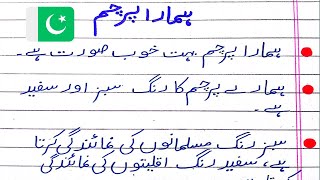 ہمارا پرچم
ہمارا پرچم بہت خوب صورت ہے۔
ہمارے پرچم کا رنگ سبز اور سفید
ہے۔
سبز رنگ مسلمانوں کی نمائندگی کرتا
ہے، سفید رنگ اقلیتوں کی نمائندگی